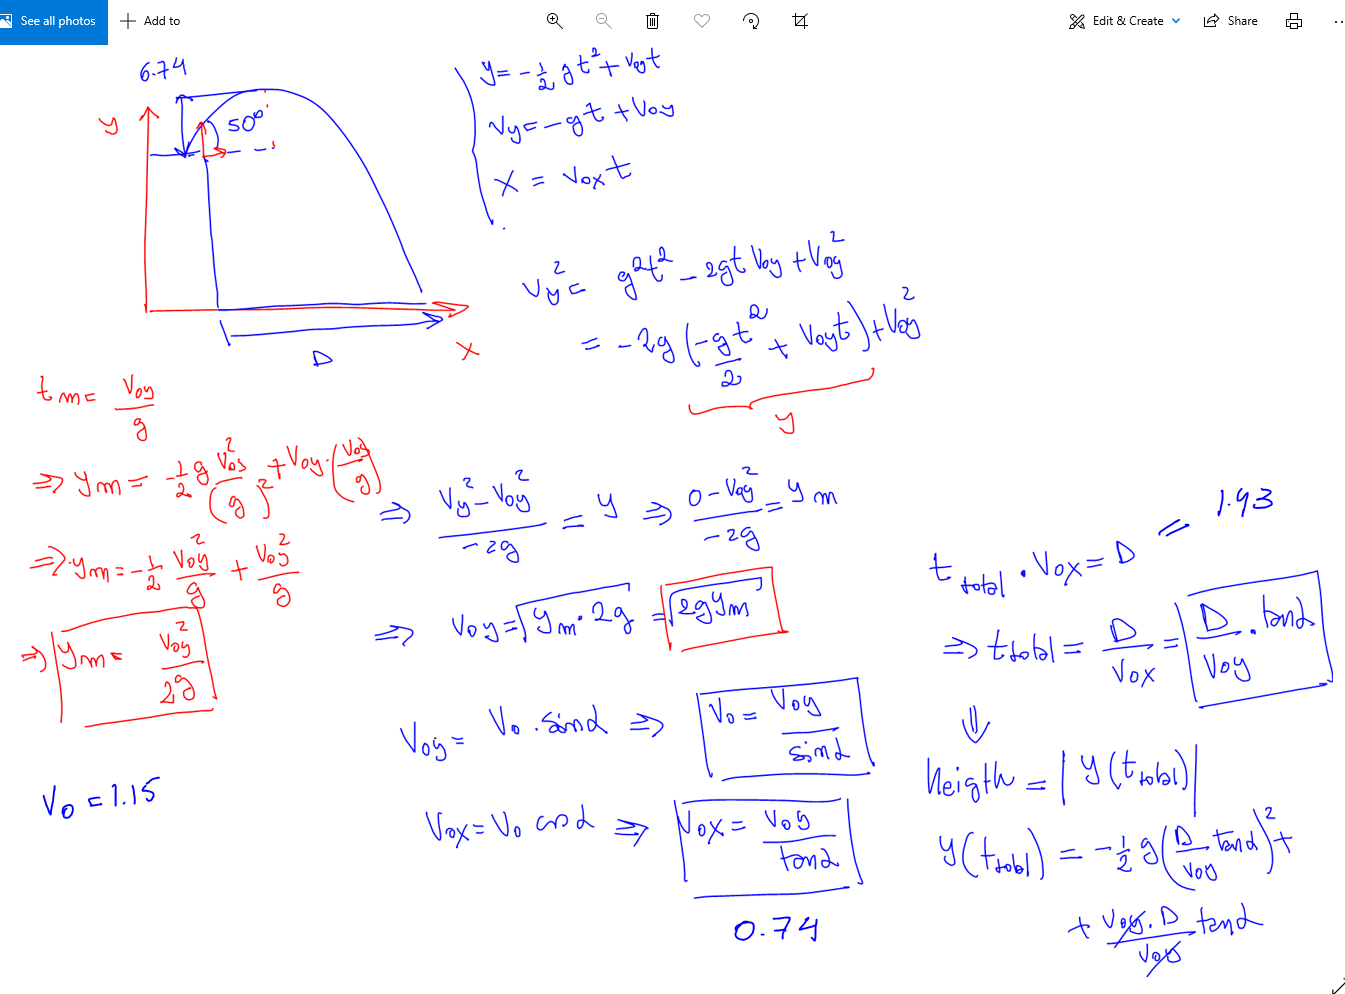 See all photos
Add to
Edit & Create
Share
6.74
y
50°
D
x
y = -1/2 gt² + Voyt
Vy = -gt + Voy
X = Voxt
Vy² = g²t² - 2gt Voy + Voy²
= -2g (-gt²/2 + Voyt) + Voy²
y
tm = Voy/g
⇒ ym = -1/2 g Voy²/(g)² + Voy·(Voy/g)
⇒ ym = -1/2 Voy²/g + Voy²/g
⇒ ym = Voy²/2g
Vo = 1.15
⇒ (Vy² - Voy²)/(-2g) = y ⇒ (0 - Voy²)/(-2g) = ym
⇒ Voy = √(ym·2g) = √(2gym)
Voy = Vo · sinα ⇒ Vo = Voy/sinα
Vox = Vo cosα ⇒ Vox = Voy/tanα
0.74
t total · Vox = D = 1.93
⇒ t total = D/Vox = D/Voy · tanα
⇓
heigth = |y(t total)|
y(t total) = -1/2 g (D/Voy tanα)² +
+ Voy·D/Voy tanα